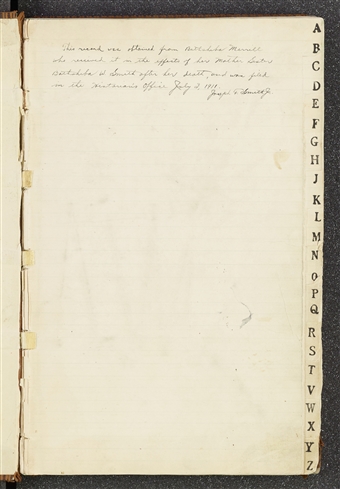 This record was obtained from Bathsheba Merrell
who received it in the effects of her Mother Sister
Bathsheba W Smith after her death, and was filed
in the Historian's Office July 2 1911
Joseph F. Smith Jr
A
B
C
D
E
F
G
H
J
K
L
M
N
O
P
Q
R
S
T
V
W
X
Y
Z